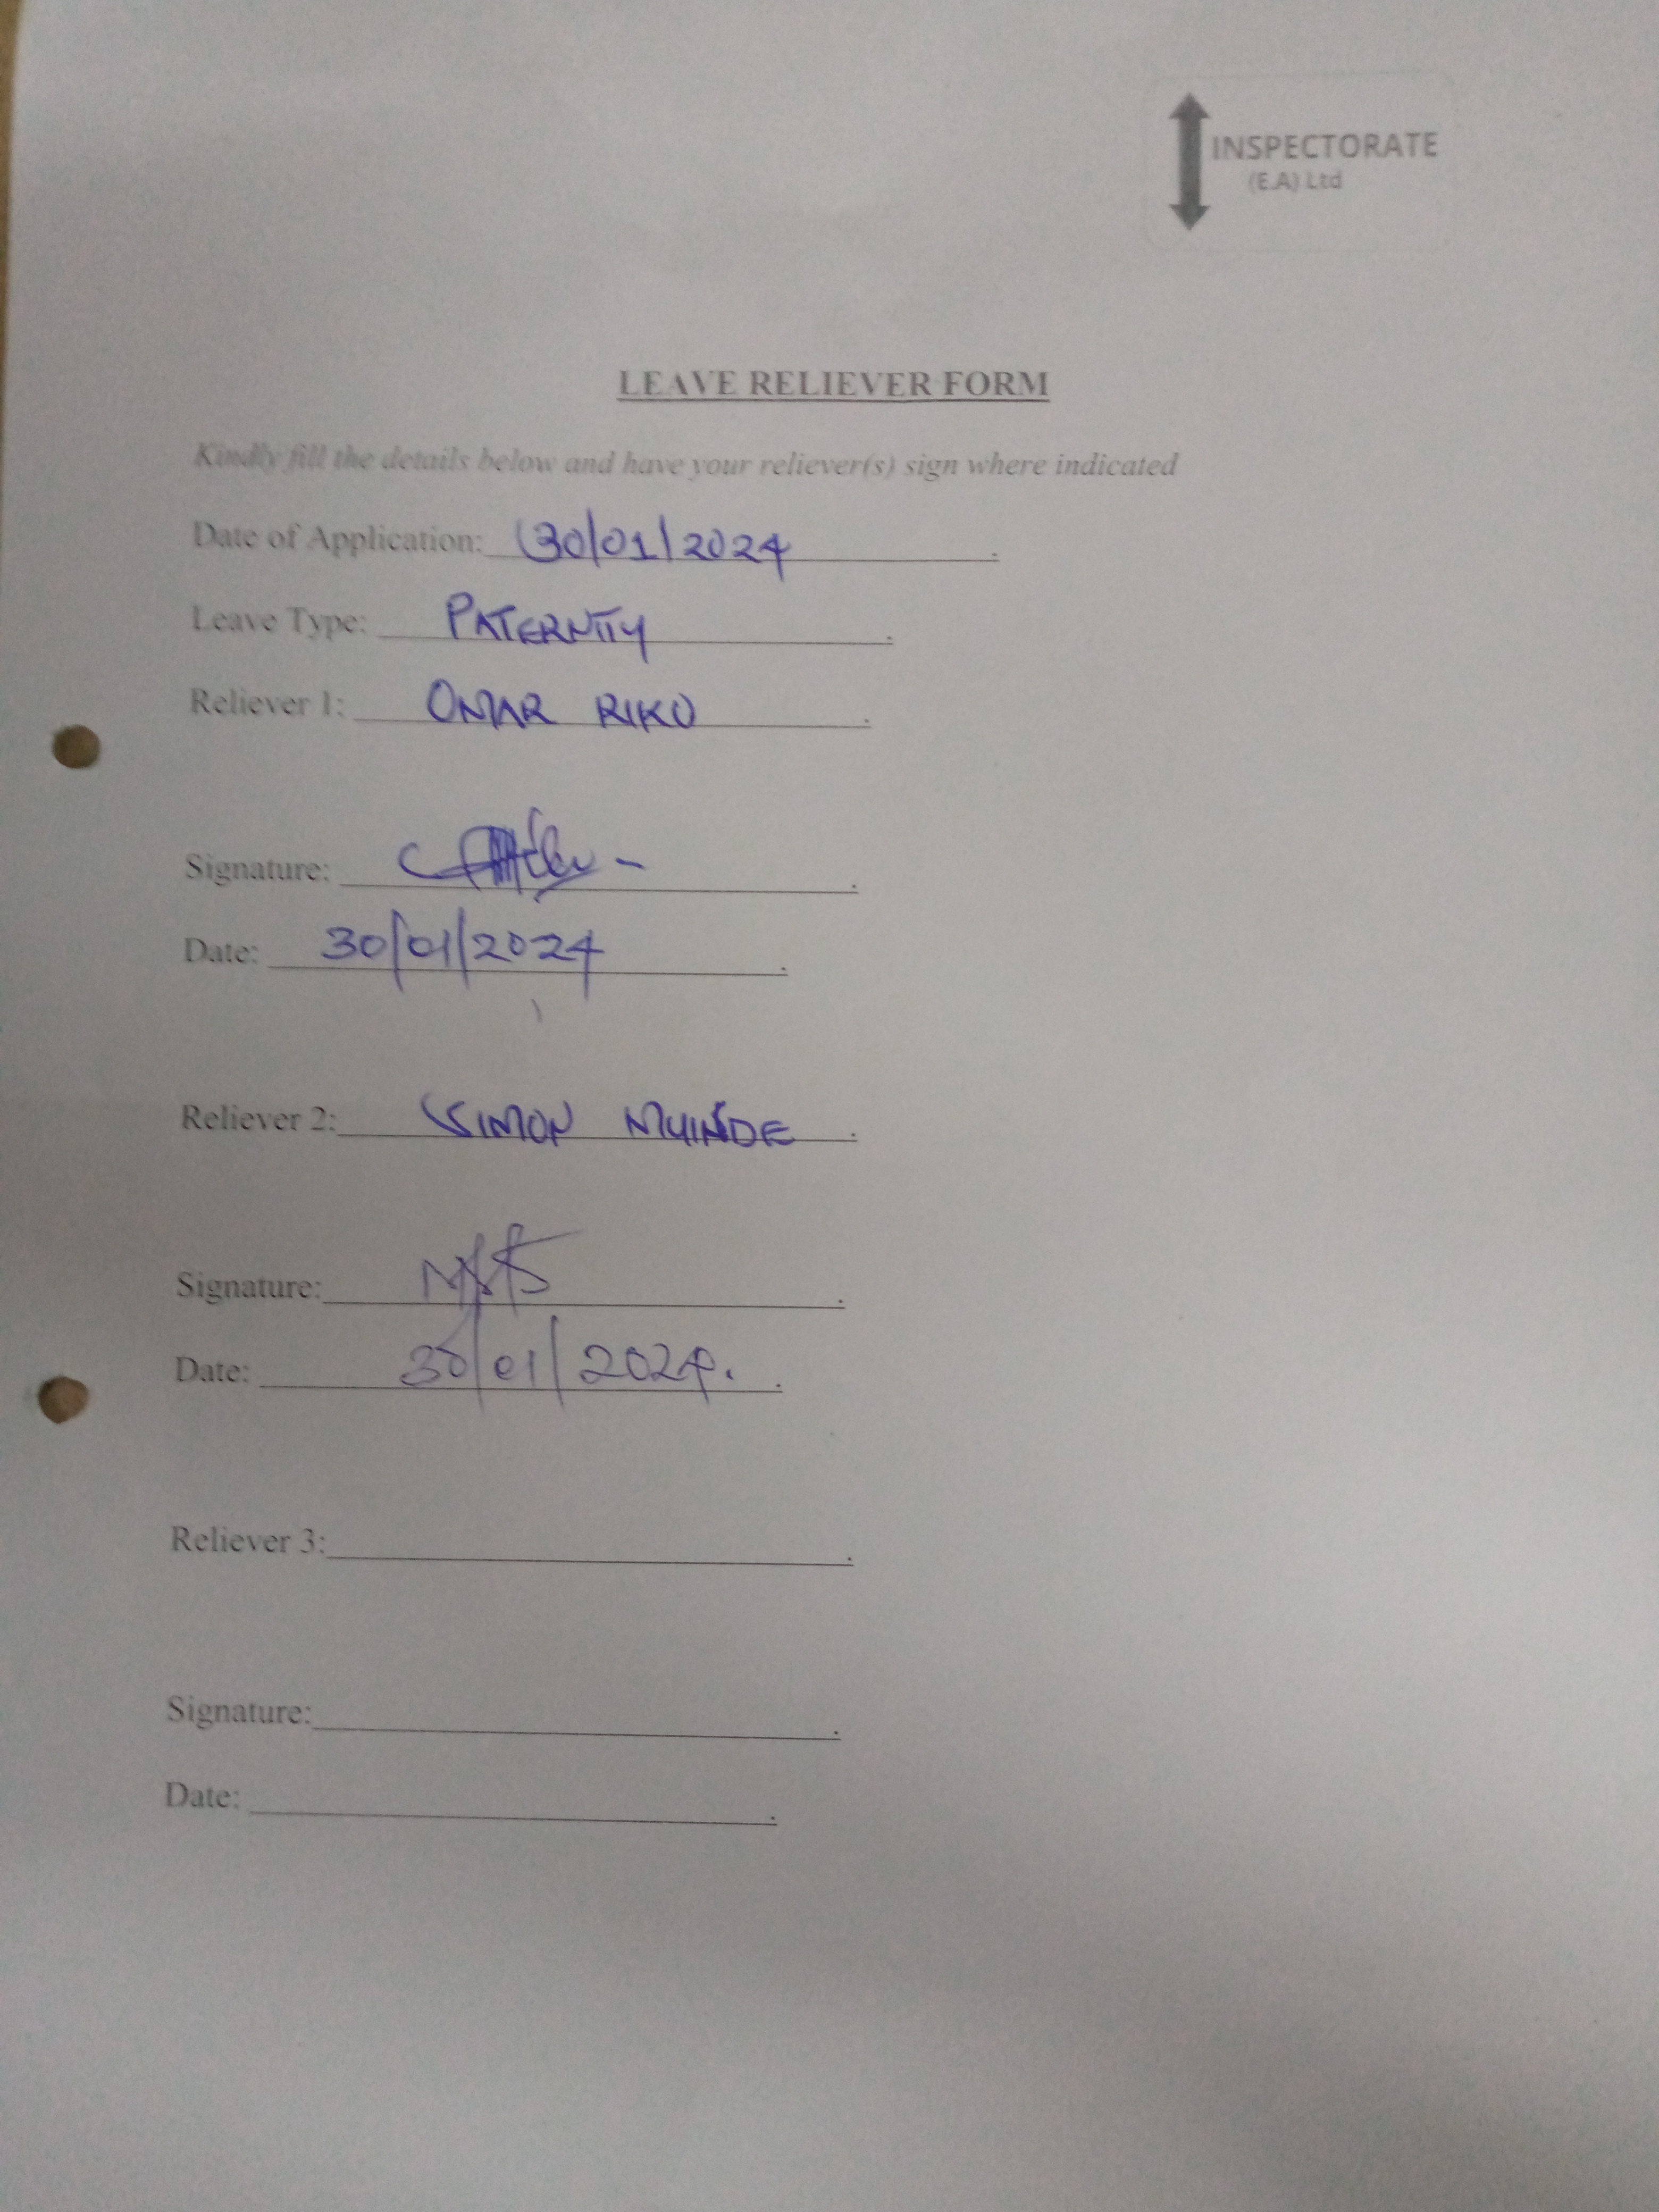 INSPECTORATE
(E.A) Ltd
LEAVE RELIEVER FORM
Kindly fill the details below and have your reliever(s) sign where indicated
Date of Application: 30/01/2024.
Leave Type: PATERNITY.
Reliever 1: OMAR RIKO.
Signature:.
Date: 30/01/2024.
Reliever 2: SIMON MUINDE.
Signature:.
Date: 30/01/2024.
Reliever 3:.
Signature:.
Date:.